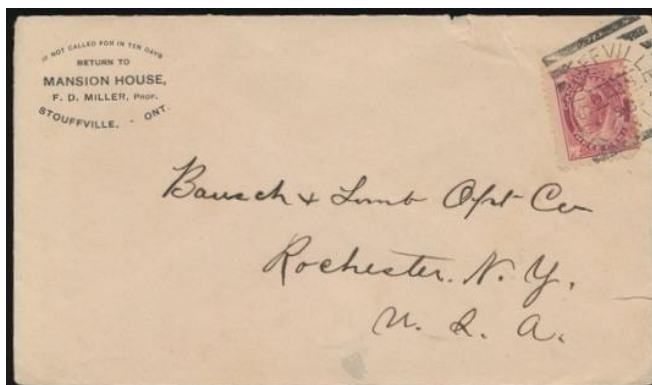 IF NOT CALLED FOR IN TEN DAYS
RETURN TO
MANSION HOUSE,
F. D. MILLER, PROP.
STOUFFVILLE, - ONT.
Bausch & Lomb Opt Co
Rochester. N. Y.
U. S. A.